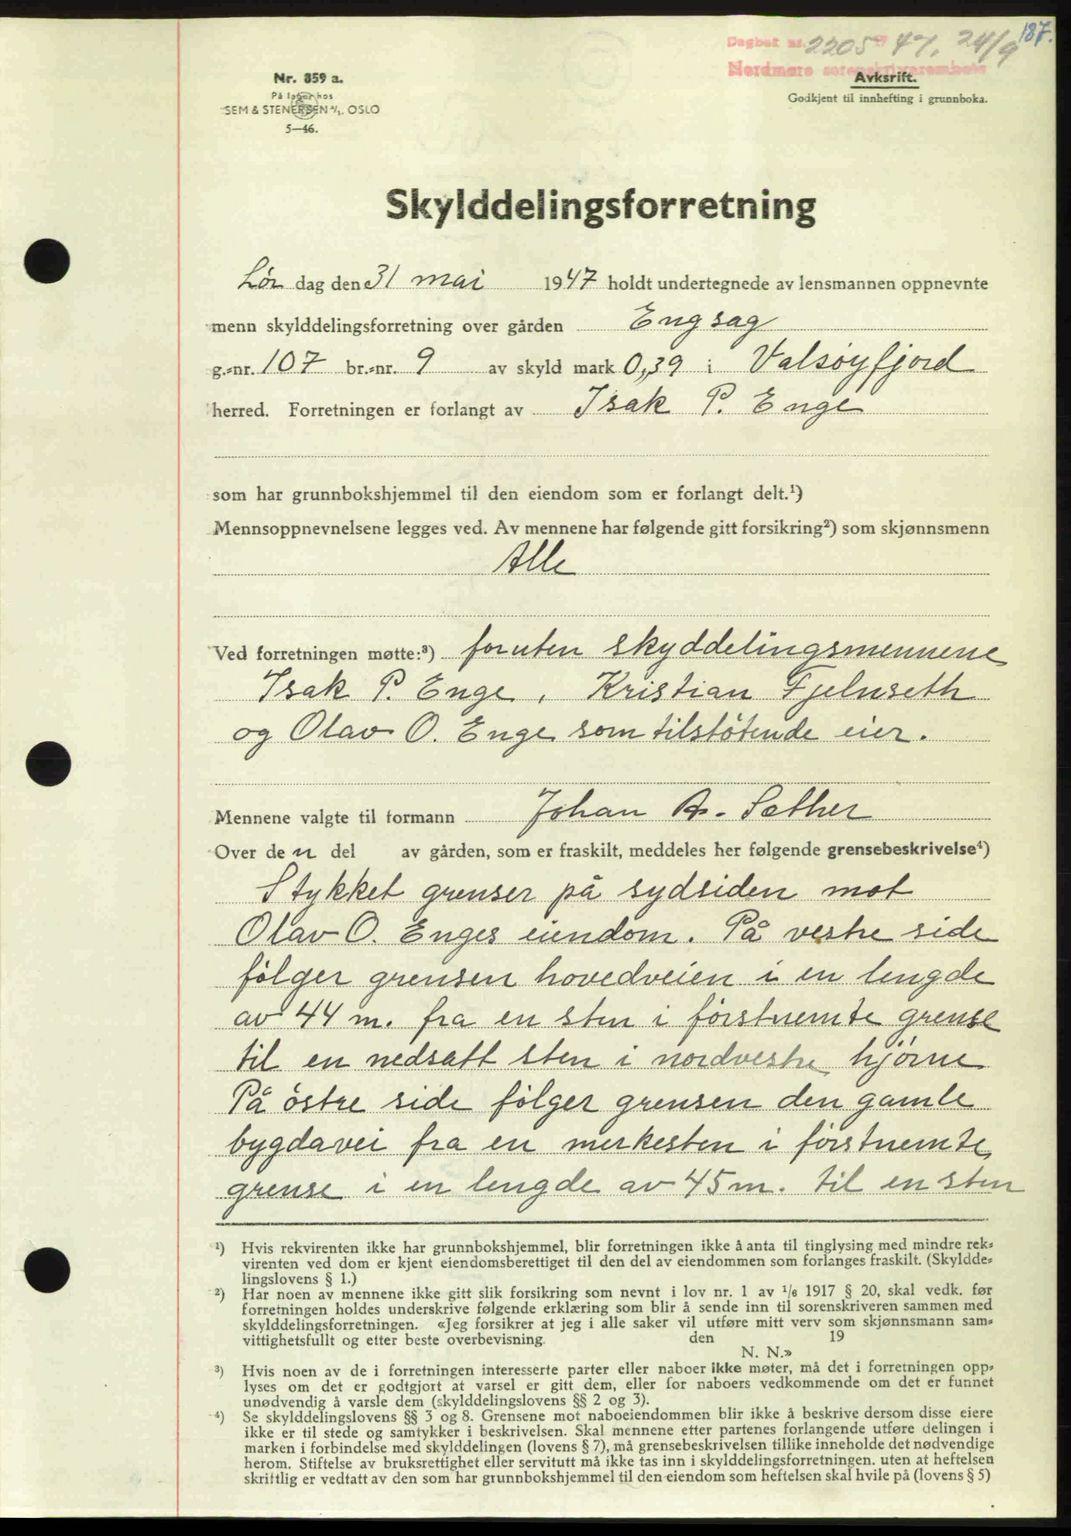 187.
Dagbok nr. 2205 47. 24/9
Nordmøre sorenskriverembete
Nr. 859 a.
På lager hos
SEM & STENERSEN A/S. OSLO
5—46.
Avksrift.
Godkjent til innhefting i grunnboka.
Skylddelingsforretning
Lør dag den 31 mai 1947 holdt undertegnede av lensmannen oppnevnte
menn skylddelingsforretning over gården Engsag
g.-nr. 107 br.-nr. 9 av skyld mark 0,39 i Valsøyfjord
herred. Forretningen er forlangt av Isak P. Enge
som har grunnbokshjemmel til den eiendom som er forlangt delt.¹)
Mennsoppnevnelsene legges ved. Av mennene har følgende gitt forsikring²) som skjønnsmenn
Alle
Ved forretningen møtte:³) foruten skyddelingsmennene
Isak P. Enge, Kristian Fjelnseth
og Olav O. Enge som tilstøtende eier.
Mennene valgte til formann Johan A. Sæther
Over de n del av gården, som er fraskilt, meddeles her følgende grensebeskrivelse⁴)
Stykket grenser på sydsiden mot
Olav O. Enges eiendom. På vestre side
følger grensen hovedveien i en lengde
av 44 m. fra en sten i førstnemte grense
til en nedsatt sten i nordvestre hjørne
På østre side følger grensen den gamle
bygdavei fra en merkesten i førstnemte
grense i en lengde av 45 m. til en sten
¹) Hvis rekvirenten ikke har grunnbokshjemmel, blir forretningen ikke å anta til tinglysing med mindre rek-
virenten ved dom er kjent eiendomsberettiget til den del av eiendommen som forlanges fraskilt. (Skyldde-
lingslovens § 1.)
²) Har noen av mennene ikke gitt slik forsikring som nevnt i lov nr. 1 av 1/6 1917 § 20, skal vedk. før
forretningen holdes underskrive følgende erklæring som blir å sende inn til sorenskriveren sammen med
skylddelingsforretningen. «Jeg forsikrer at jeg i alle saker vil utføre mitt verv som skjønnsmann sam-
vittighetsfullt og etter beste overbevisning. den 19
N. N.»
³) Hvis noen av de i forretningen interesserte parter eller naboer ikke møter, må det i forretningen opp-
lyses om det er godtgjort at varsel er gitt dem, eller for naboers vedkommende om det er funnet
unødvendig å varsle dem (skylddelingslovens §§ 2 og 3).
⁴) Se skylddelingslovens §§ 3 og 8. Grensene mot naboeiendommen blir ikke å beskrive dersom disse eiere
ikke er til stede og samtykker i beskrivelsen. Skal mennene etter partenes forlangende utføre delingen i
marken i forbindelse med skylddelingen (lovens § 7), må grensebeskrivelsen tillike inneholde det nødvendige
herom. Stiftelse av bruksrettighet eller servitutt må ikke tas inn i skylddelingsforretningen. uten at heftelsen
skriftlig er vedtatt av den som har grunnbokshjemmel til den eiendom som heftelsen skal hvile på (lovens § 5)